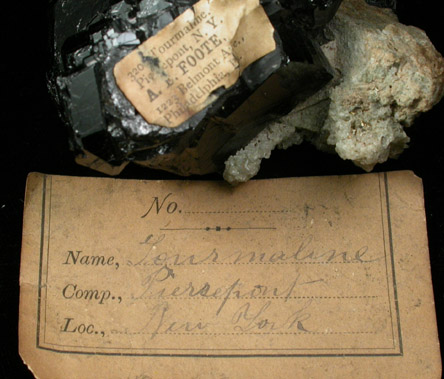 323 Tourmaline.
Pierrepont, N. Y.
A. E. FOOTE,
1223 Belmont Ave.,
Philadelphia
No.
Name, Tourmaline
Comp., Pierrepont
Loc., New York